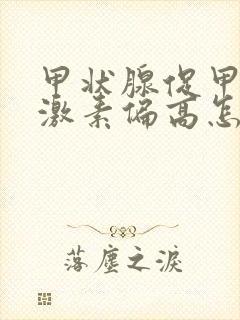 甲状腺促甲
激素偏高怎
落尘之泪